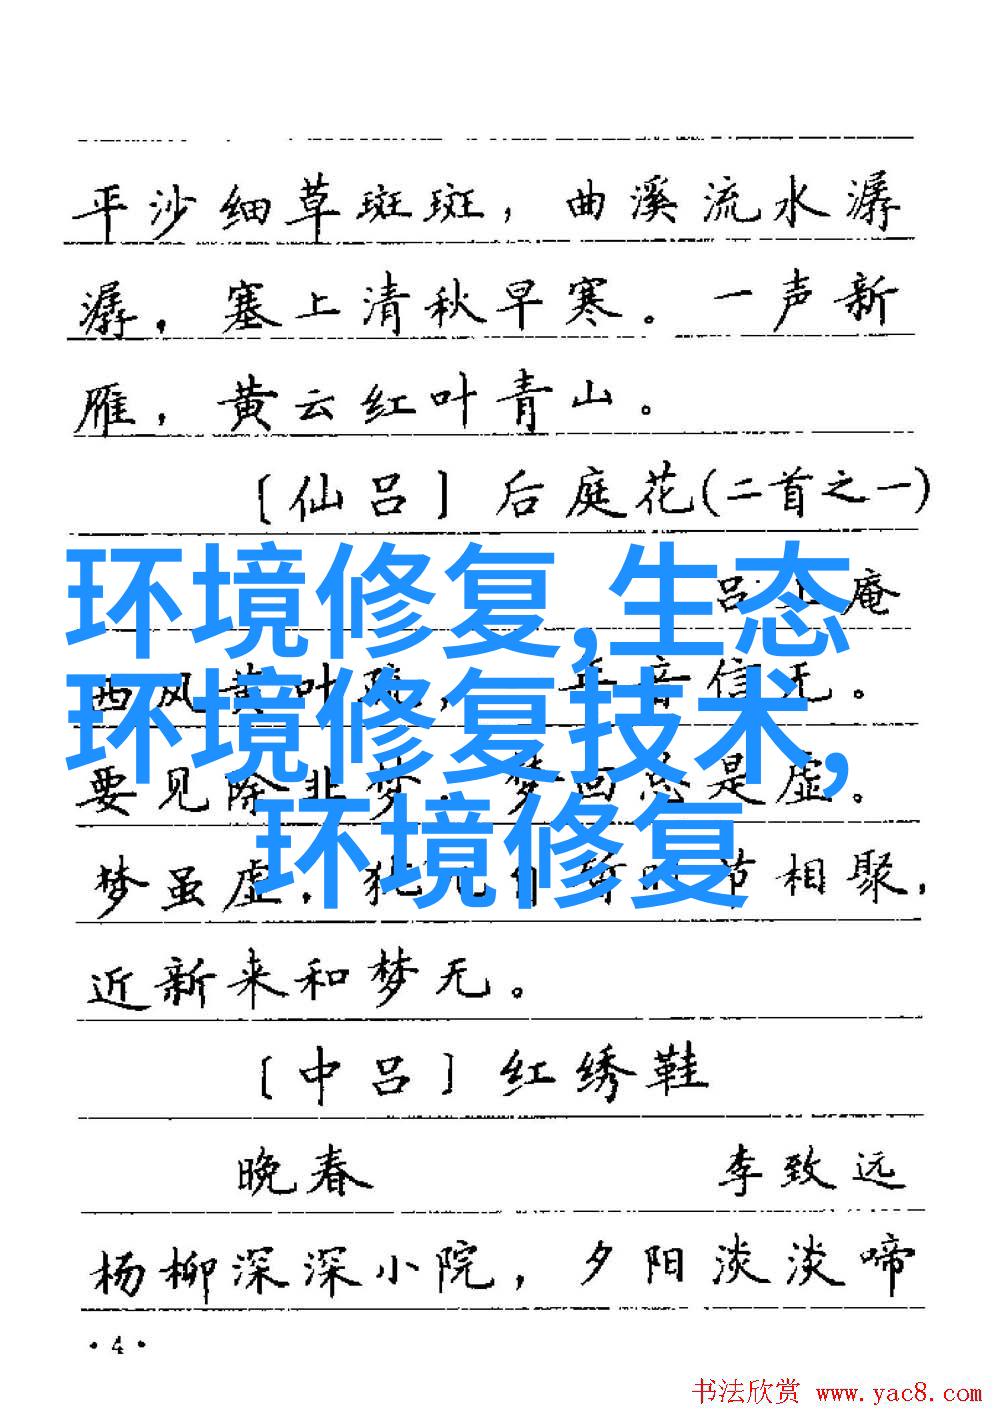 平沙细草斑斑，曲溪流水潺
潺，塞上清秋早寒。一声新
雁，黄云红叶青山。
〔仙吕〕后庭花(二首之一)
环境修复,生态
吕止庵
环境修复技术,
西风黄叶疏，年音信无。
要见除非梦，梦回总是虚。
环境修复
梦虽虚，犹时节相聚，
近新来和梦无。
〔中吕〕红绣鞋
晚春 李致远
杨柳深深小院，夕阳淡淡啼
·4·
书法欣赏 www.yac8.com